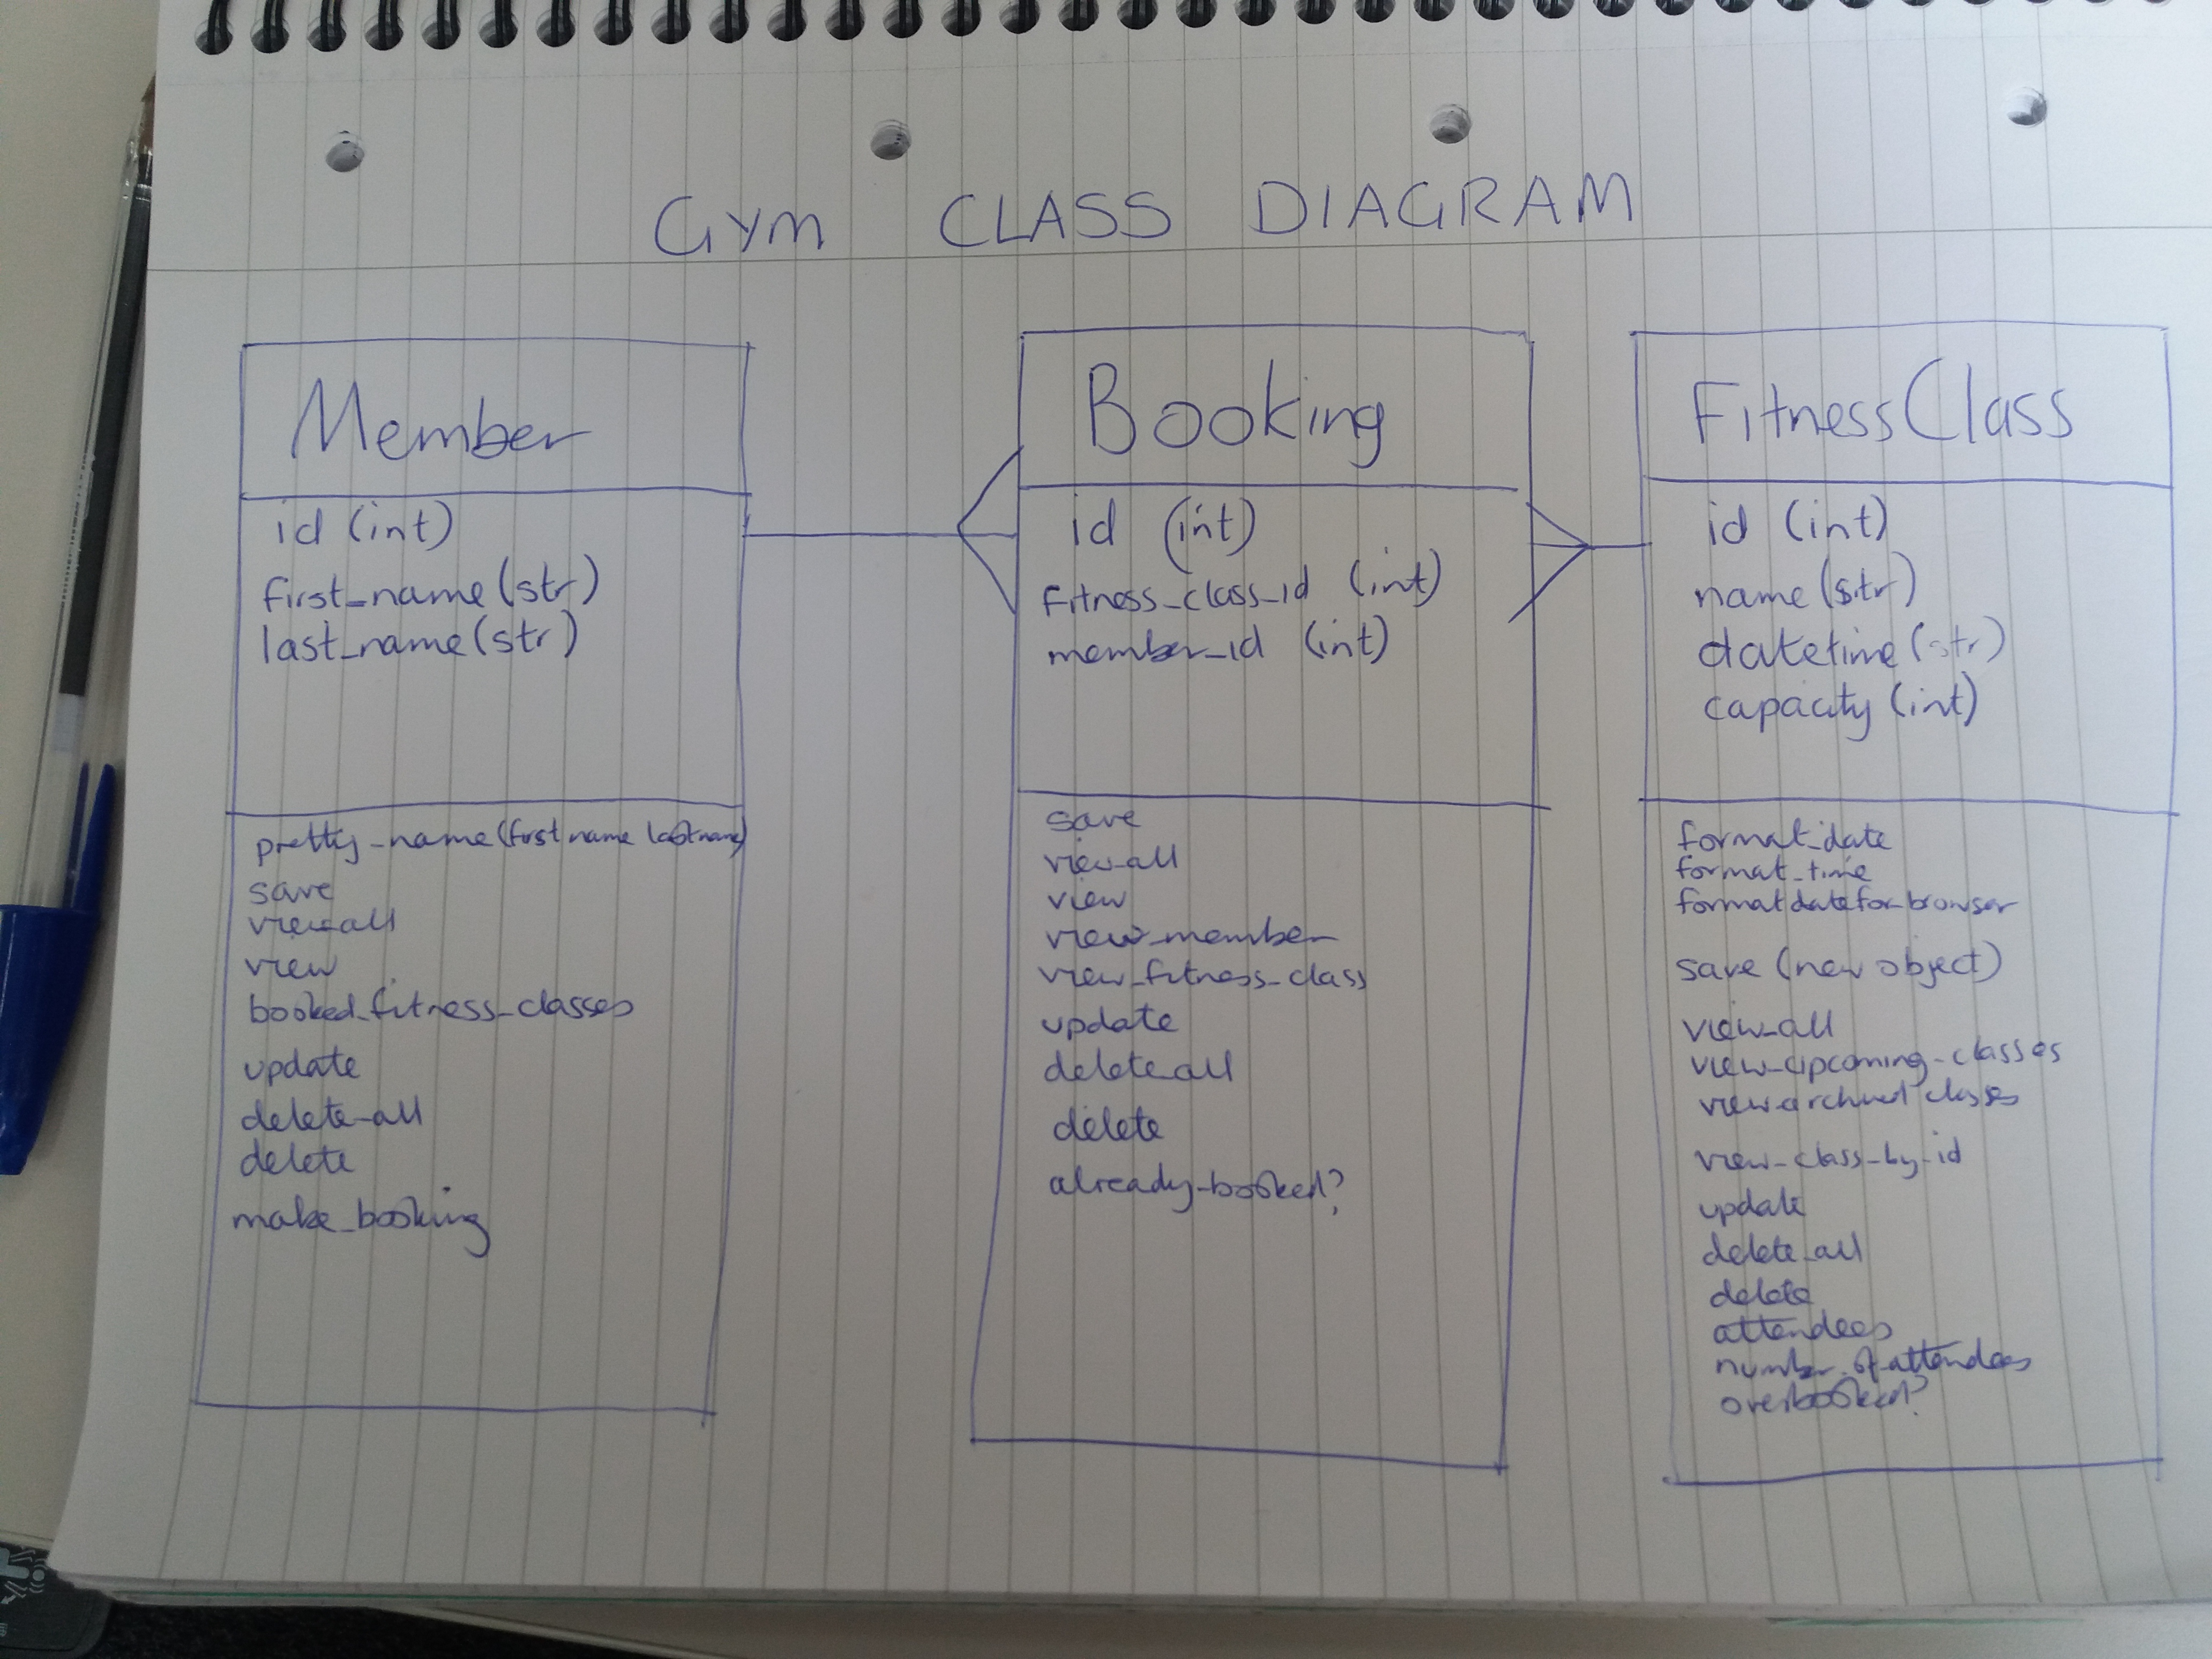 GYM CLASS DIAGRAM
Member
id (int)
first_name (str)
last_name (str)
pretty_name (first name last name)
save
view_all
view
booked_fitness_classes
update
delete_all
delete
make_booking
Booking
id (int)
fitness_class_id (int)
member_id (int)
save
view_all
view
view_member
view_fitness_class
update
delete_all
delete
already_booked?
FitnessClass
id (int)
name (str)
datetime (str)
capacity (int)
format_date
format_time
format date for browser
save (new object)
view_all
view_upcoming_classes
view_archived classes
view_class_by_id
update
delete_all
delete
attendees
number_of_attendees
overbooked?